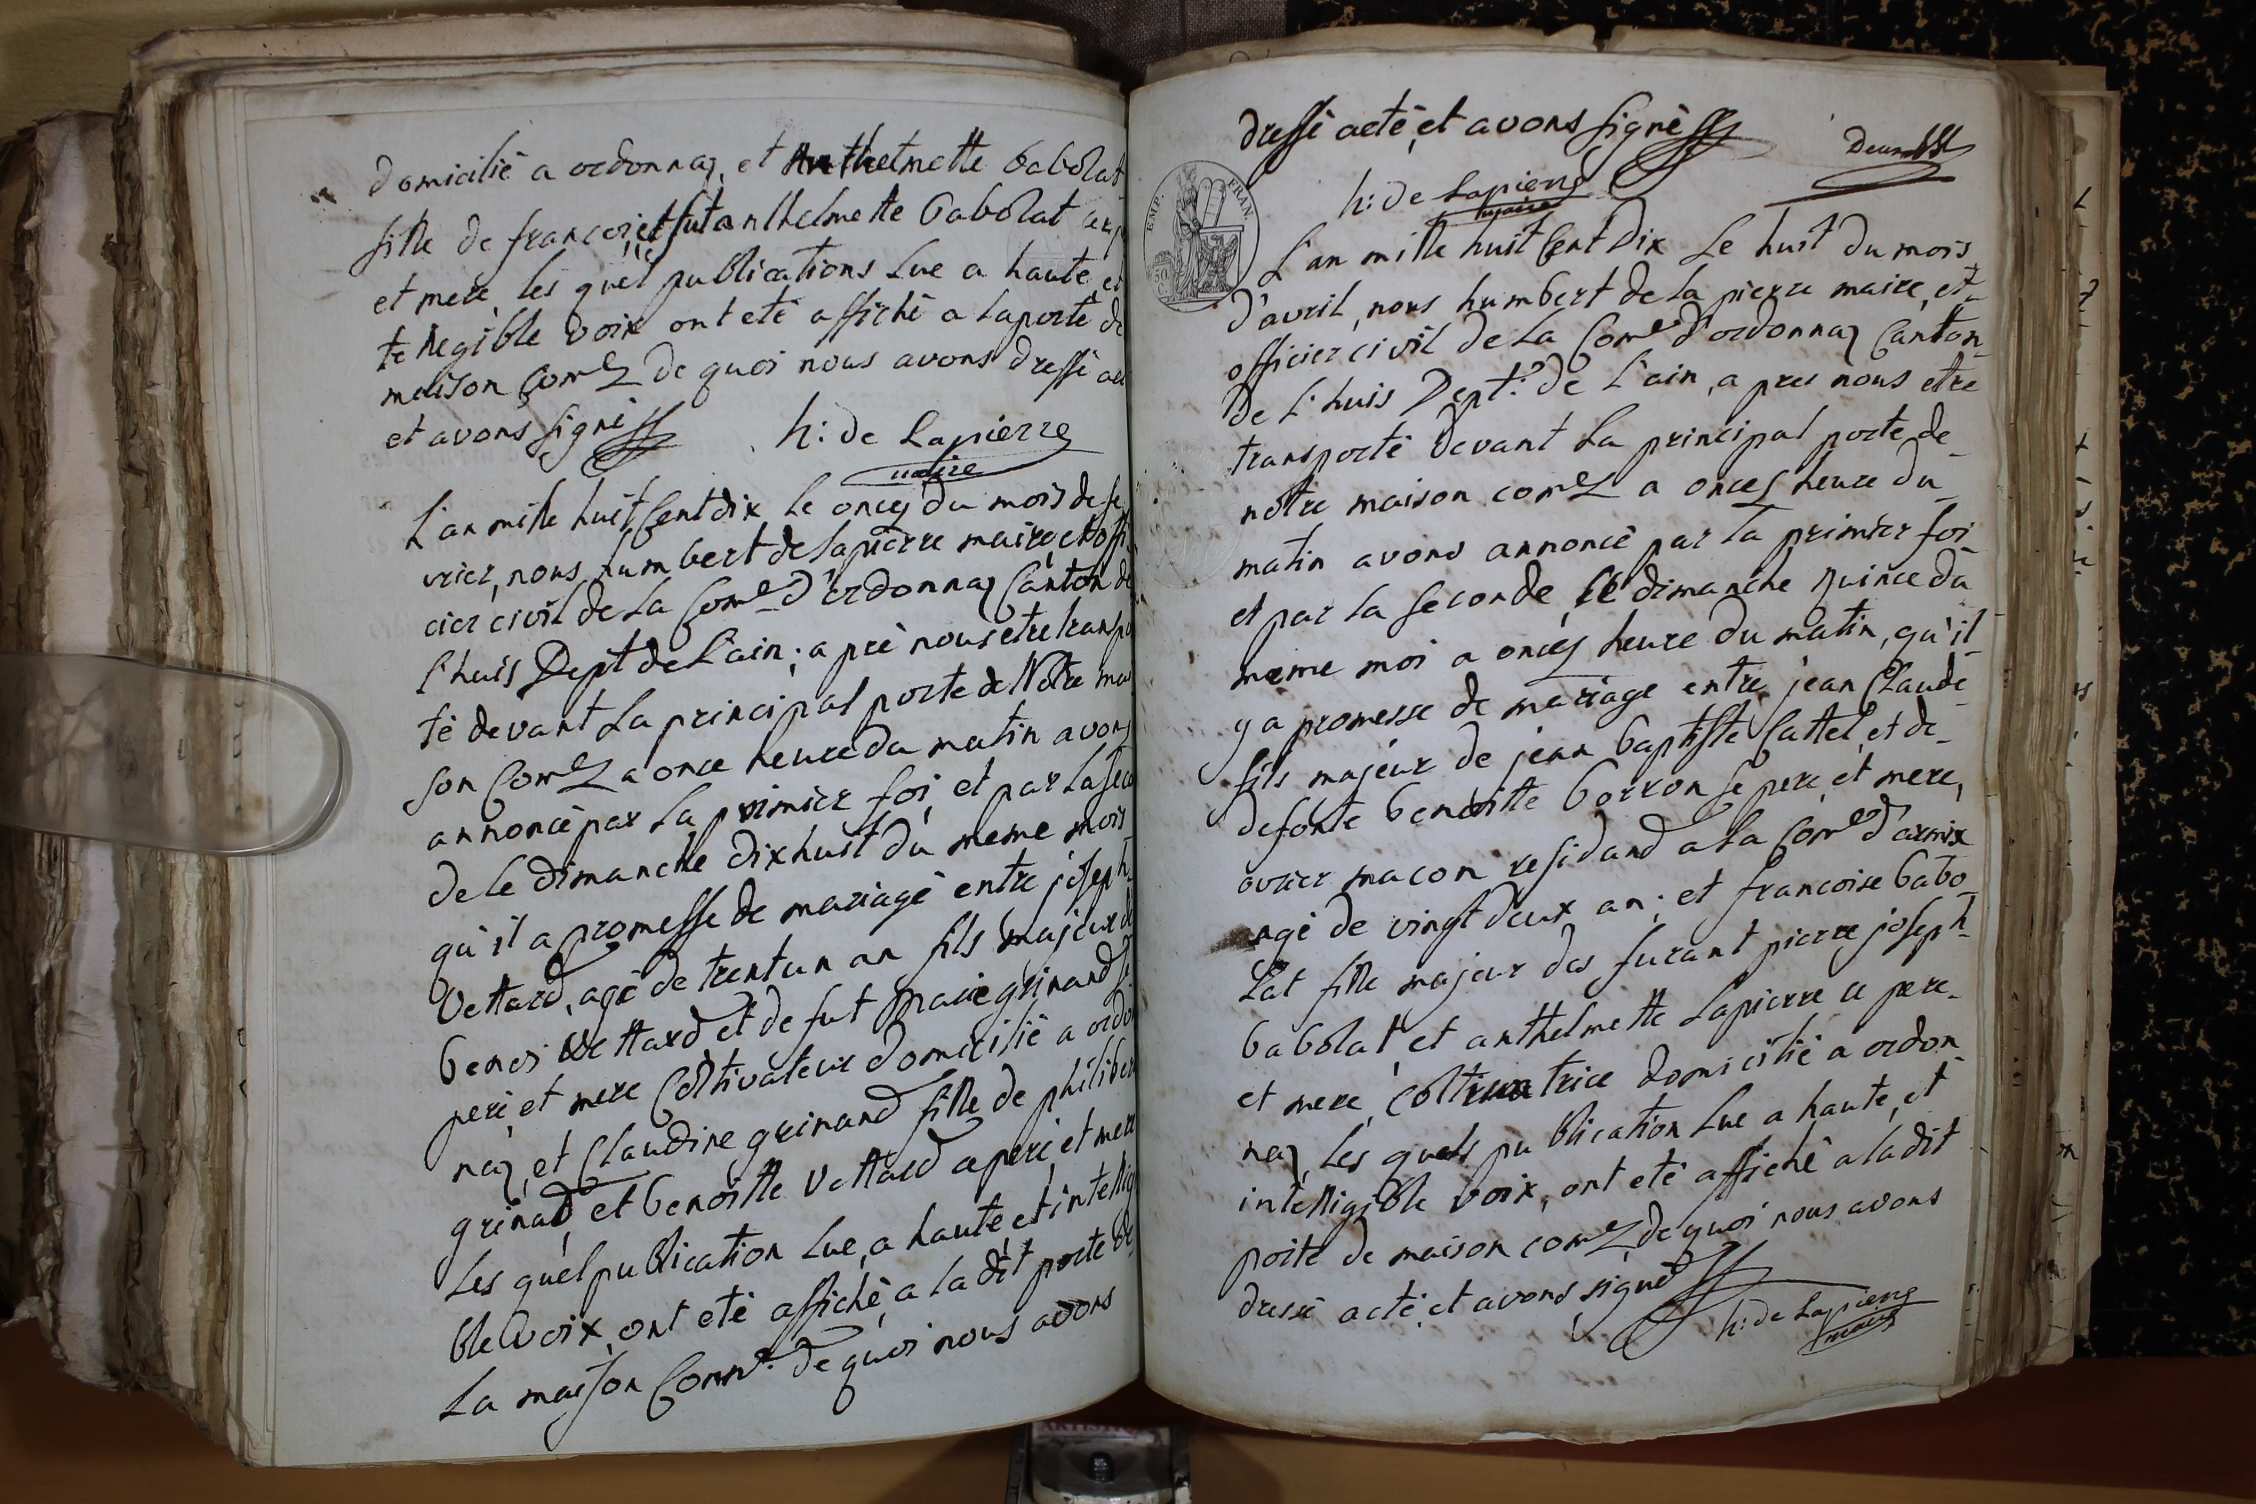 domicilié a ordonnaz, et Anthelmette babolat
fille de francois, et fut anthelmette babolat
et mere, les quel publications lue a haute, et
te llegible voix ont eté affiché a laporte de
maison Com^e de quoi nous avons dressé
et avons signé
h: de Lapierre
maire
L'an mille huit Cent dix le onzes du mois de fe
vrier, nous humbert de lapierre maire, et offi
cier civil de la Com^e d'ordonnaz Canton de
L'huis Dept de L'ain; a pré nous etre transpo
té devant La principal porte de Notre mai
son Com^e a once heure du matin avons
annoncé par La primier foi, et par La seco
de le dimanche dixhuit du meme mois
qu'il a promesse de mariagé entre joseph
Vettard, agé de trentun an fils majeur de
benoi Vettard et de fut Marie grinand
peré, et mere Coltivateur domicilié a ordo
naz, et Claudine grinand fille de philiber
grinad, et benoitte Vettard a peré, et mere
Les quel publication lue, a haute, et intellig
ble voix, ont eté affiché, a la dit porte de
La maison Comm^e. de quoi nous avons
dressé acté, et avons signé
h: de Lapierre
maire
L'an mille huit Cent Dix Le huit du mois
d'avril, nous humbert de la pierre maire, et
officier civil de la Com^e d'ordonnaz Canton
de L'huis Dept: de L'ain, a pres nous etre
transporté devant La principal porte de
notre maison com^e a onces heure du
matin avons annoncé par la primier foi
et par la seconde le dimanche quince du
meme moi a onces heure du matin, qu'il
y a promesse de mariage entre jean Claude
fils majeur de jean baptiste Cattel, et de
defonte benoitte borron se pere, et mere,
ovrier macon residand a la Com^e d'armix
agé de vingt deux an; et francoise babo
Lat fille majeur des furant pierre joseph
babolat, et anthelmette Lapierre a pere
et mere, coltivatrice domicilié a ordon
naz, les quels publication lue a haute, et
intelligible voix, ont eté affiché a ladit
porte de maison com^e, de quoi nous avons
dressé acté, et avons signé
h: de Lapierre
maire
EMP. FRAN.